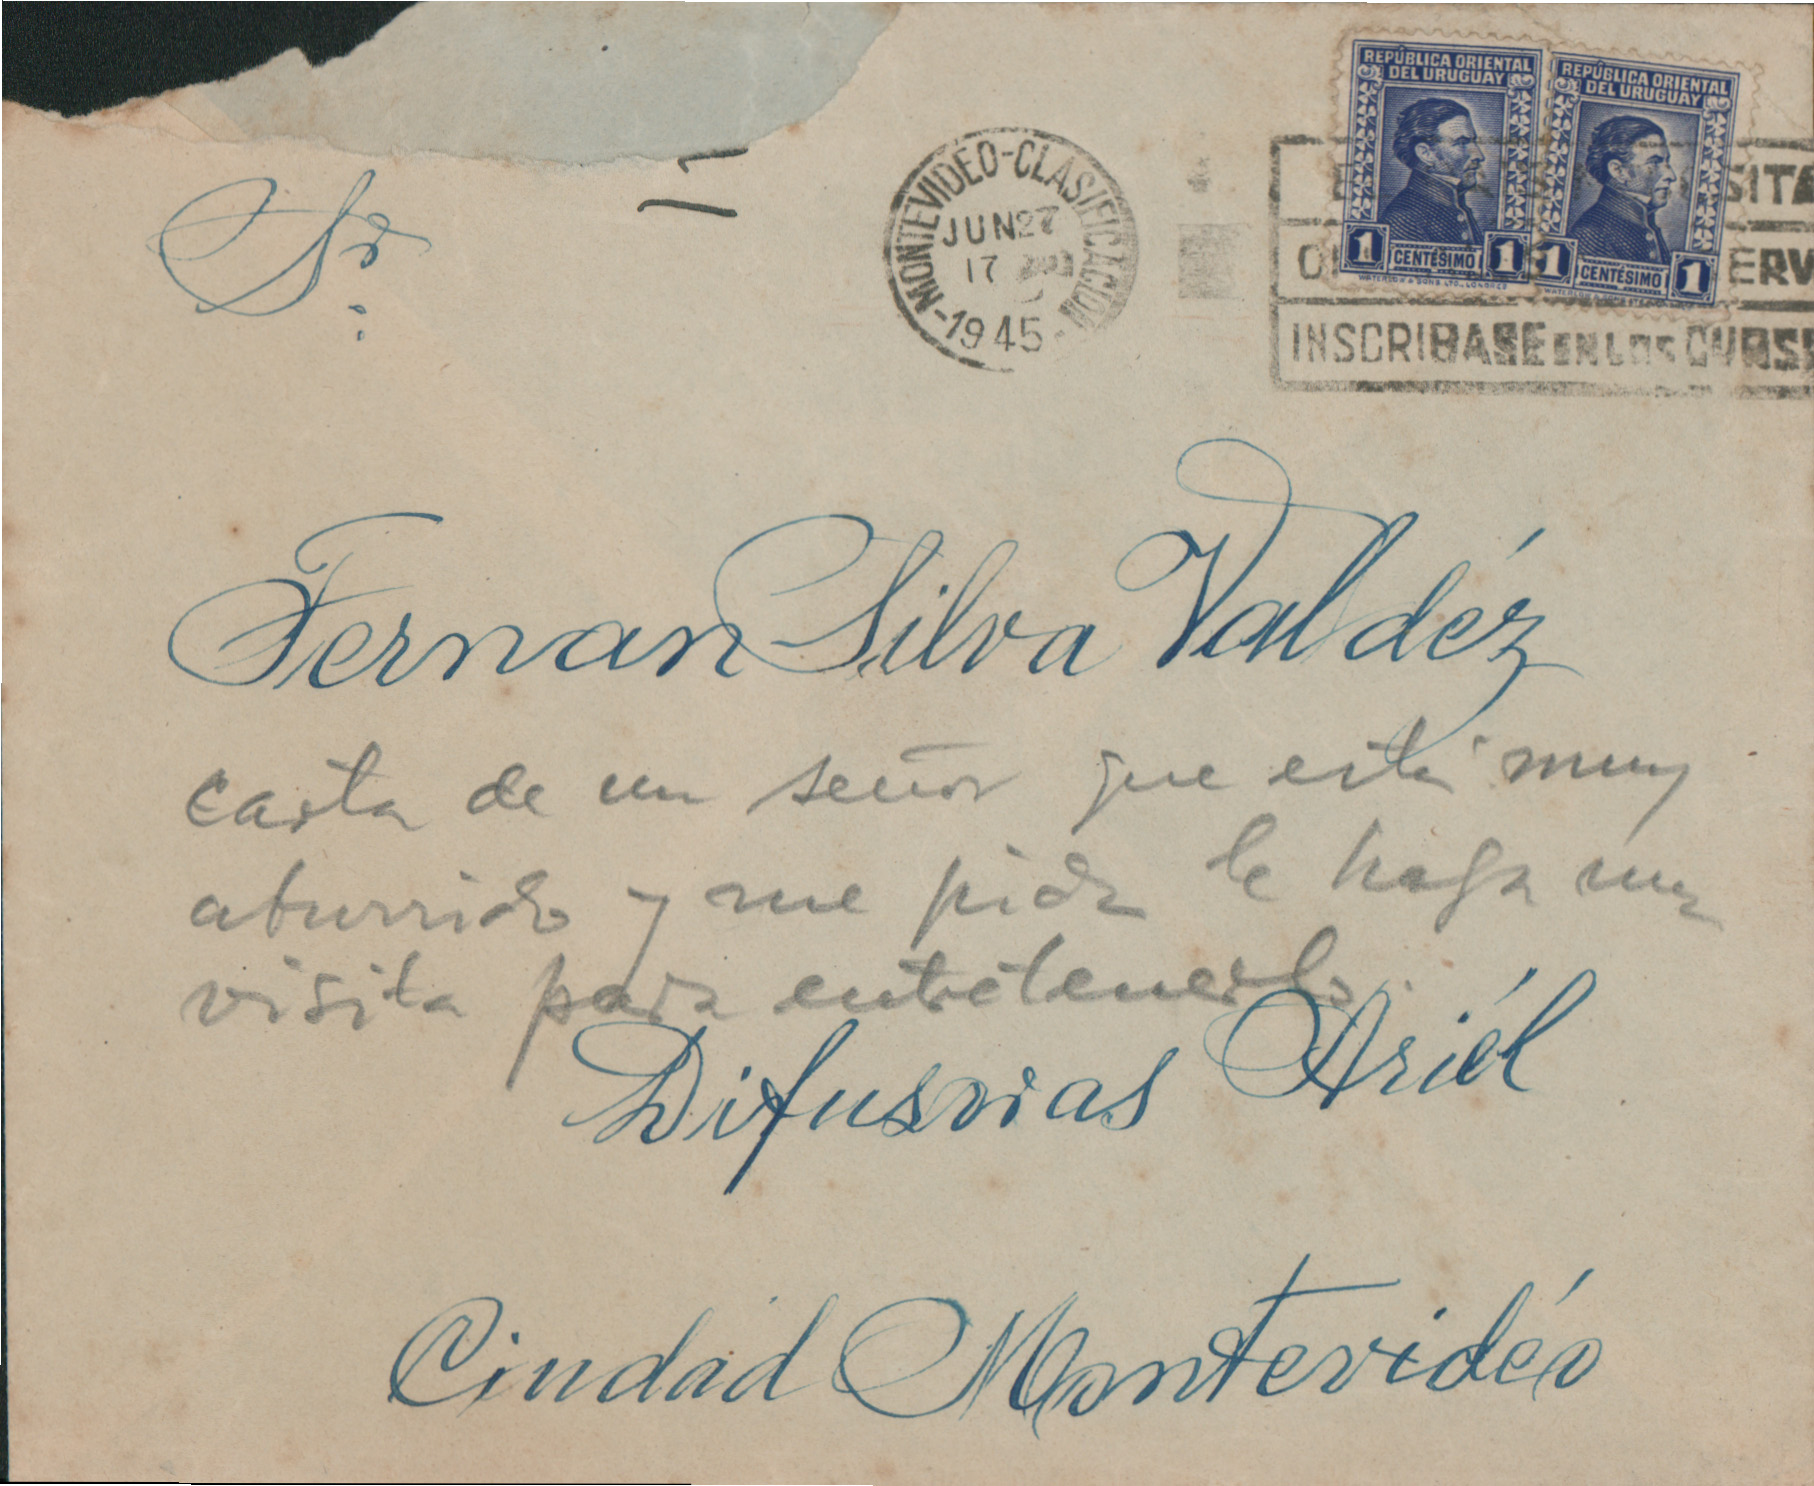 REPÚBLICA ORIENTAL
DEL URUGUAY
1 CENTÉSIMO 1
WATERLOW & SONS LTD. LONDRES
REPÚBLICA ORIENTAL
DEL URUGUAY
1 CENTÉSIMO 1
MONTEVIDEO-CLASIFICACION
JUN 27
17
-1945-
SITA
ERV
INSCRIBASE EN LOS CURS
Sr:
Fernan Silva Valdéz
carta de un señor que está muy
aburrido y me pide le haga una
visita para entretenerlo.
Difusoras Ariél
Ciudad Montevidéo